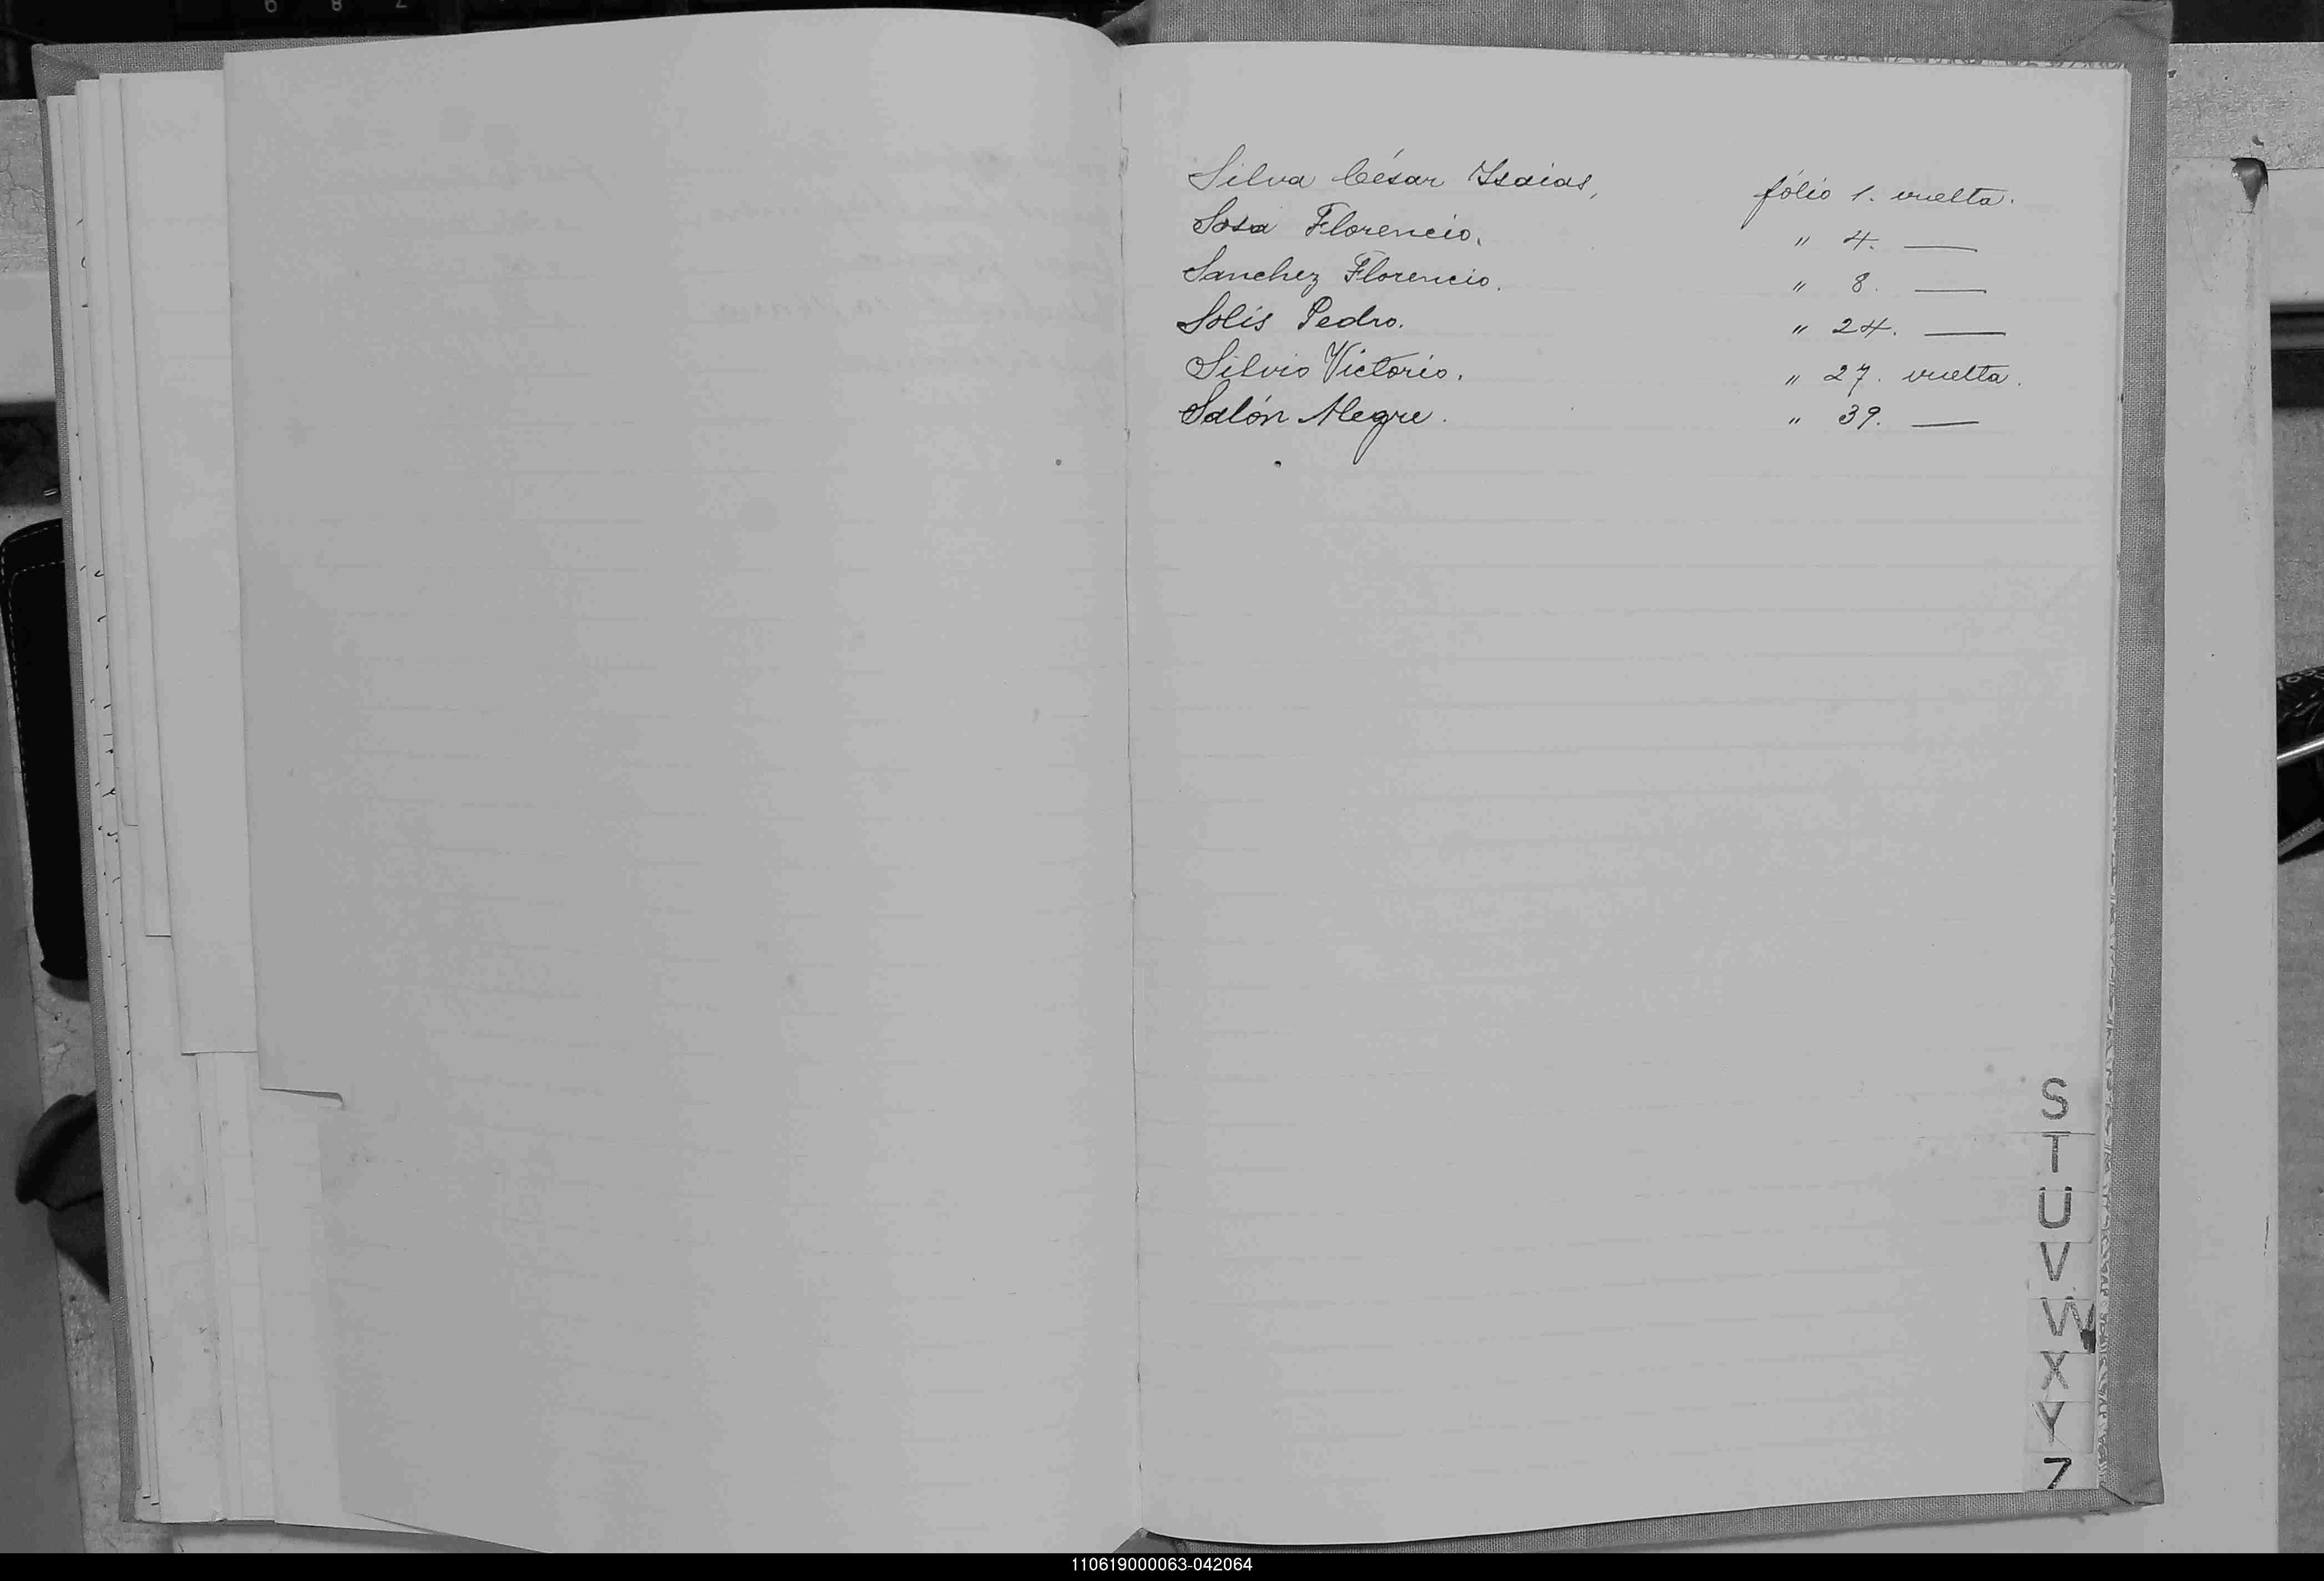 Silva César Isaias, fólio 1. vuelta.
Sosa Florencio. " 4. —
Sanchez Florencio. " 8. —
Solís Pedro. " 24. —
Silvio Victorio. " 27. vuelta.
Salón Alegre. " 39. —
S
T
U
V
W
X
Y
Z
110619000063-042064